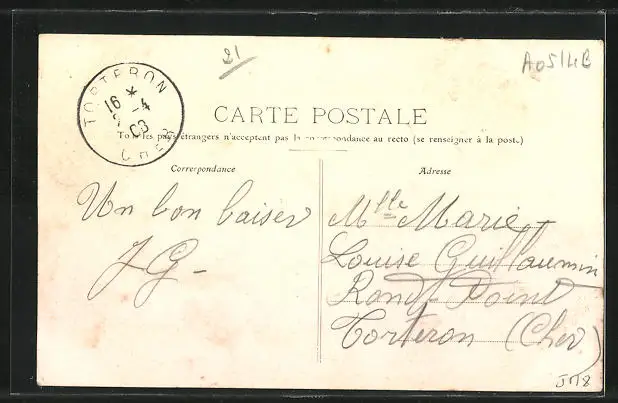 21
A0514B
TORTERON
16 *
9 -4
03
CHER
CARTE POSTALE
Tous les pays étrangers n'acceptent pas la correspondance au recto (se renseigner à la poste.)
Correspondance
Adresse
Un bon baiser
JG-
Mlle Marie-
Louise Guillaumin
Rond-Point
Torteron (Cher)